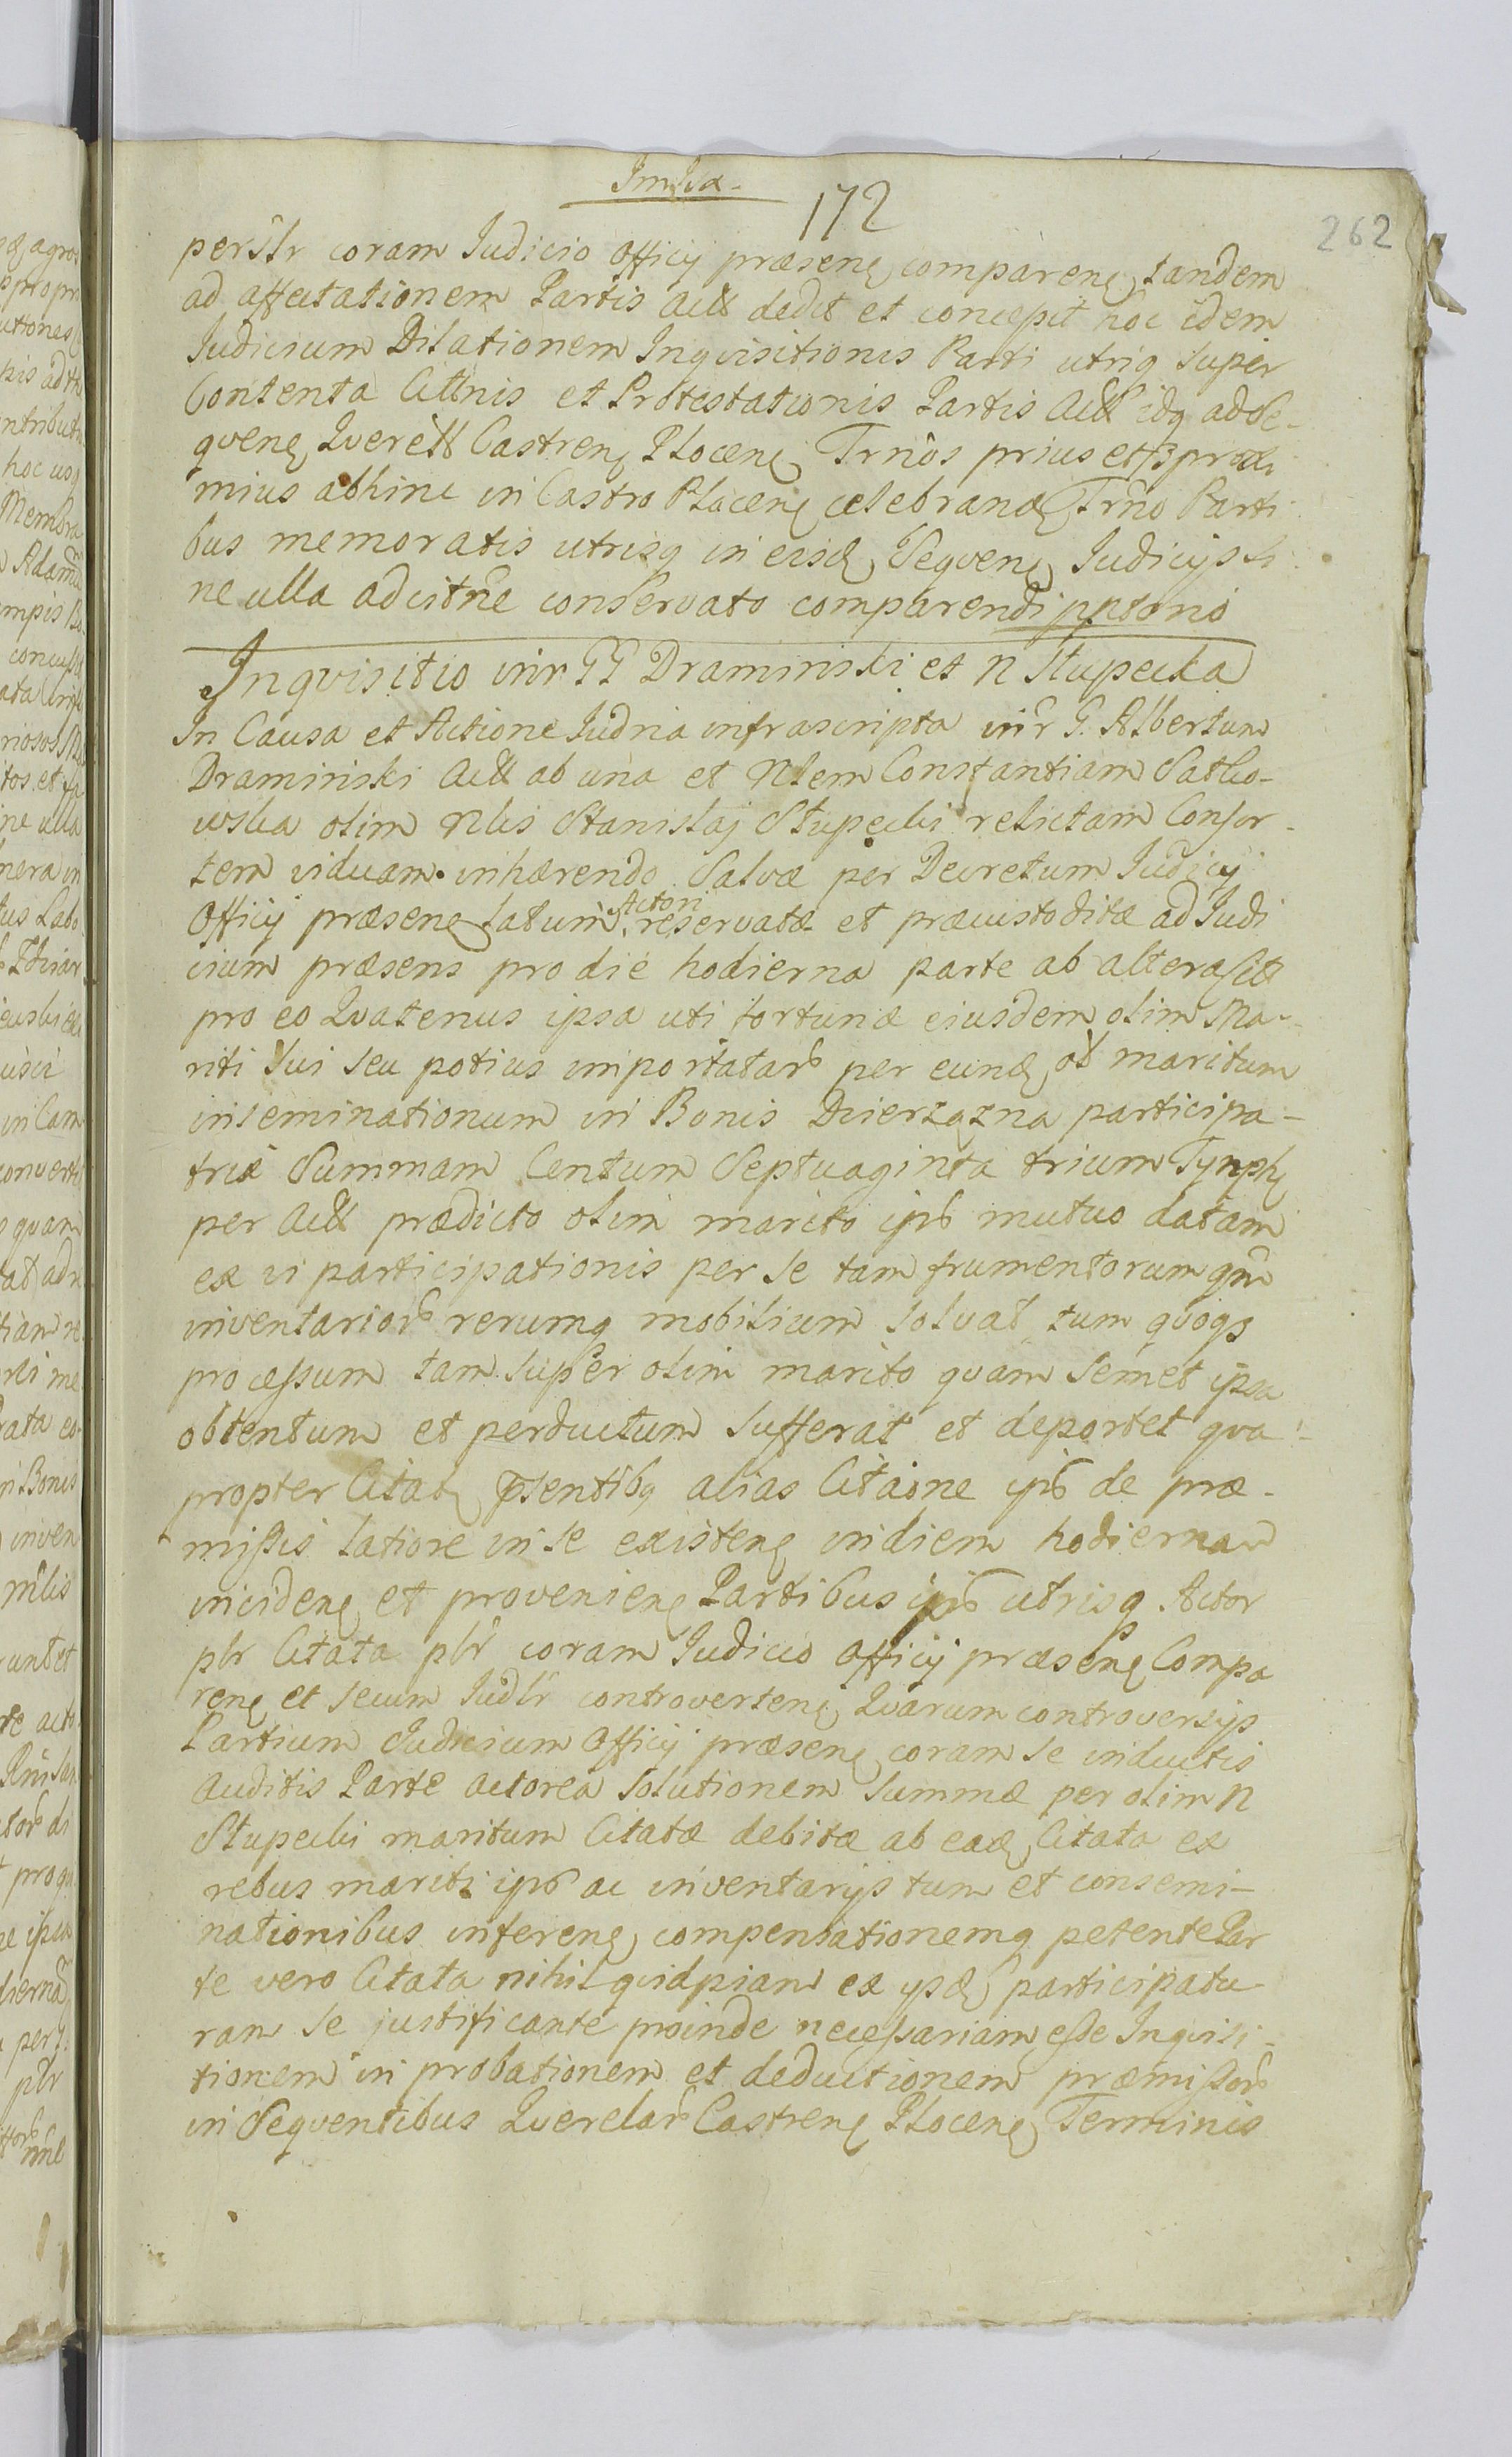 172
262
persłr coram Judicio Officij præsenę comparenę tandem
ad affectationem Partis Actt dedit et concepit hoc idem
Judicium Dilationem Inqvisitionis Parti utriq super
Contenta Cittnis et Protestationis Partis Actt idq ad Se-
qvenę Qverell Castrenę Plocenę Trnos prius et
mius abhinc in Castro Plocenę celebrandę Trno Parti
bus memoratis utrisq in eisdę Seqvenę Judicijs si
ne ulla adcitne conservato comparendi
Inqvisitio intr GG Draminski et N Stupecka
In Causa et Actione Judria infrascripta intr G. Albertum
Draminski Actt ab una et Nlem Constantiam Satko-
wska olim Nlis Stanislaj Stupecki relictam Consor-
tem viduam inhærendo Salvæ per Decretum Judicij
Officij præsenę latum Acton reservatæ et præcustoditæ ad Judi
cium præsens pro die hodierna parte ab altera Citt
pro eo Qvatenus ipsa uti fortunæ eiusdem olim Ma-
riti sui seu potius importatarb per eundę ol maritum
inseminationum in Bonis Dzierzązna participa-
trix Summam Centum Septuaginta trium Tynph
per Actt prædicto olim marito ipsb mutuo datam
ex vi participationis per se tam frumentorum qm
inventariorb rerumq mobilium solvat tum qvoqs
processum tam super olim marito qvam semet ipsa
obtentum et perductum sufferat et deportet qva-
propter Citatę psentibq alias Citaone ipsb de præ-
missis latiore in se existenę in diem hodiernam
incidenę et provenienę Partibus ipsb utrisq Actor
plr Citata plr coram Judicio Officij præsenę Compa
renę et secum Judlr controvertenę Qvarum controversijs
Partium Judicium Officij præsenę coram se inductis
Auditis Parte actorea solutionem summæ per olim N
Stupecki maritum Citatæ debitæ ab eadę Citata ex
rebus mariti ipsb ac inventarijs tum et consemi-
nationibus inferenę compensationemq petente Par
te vero Citata nihil qvidpiam ex ijsdę participatu
ram se justificante proinde necessariam esse Inqvisi-
tionem in probationem et deductionem præmissorb
in Seqventibus Qverelarb Castrenę Plocenę Terminis